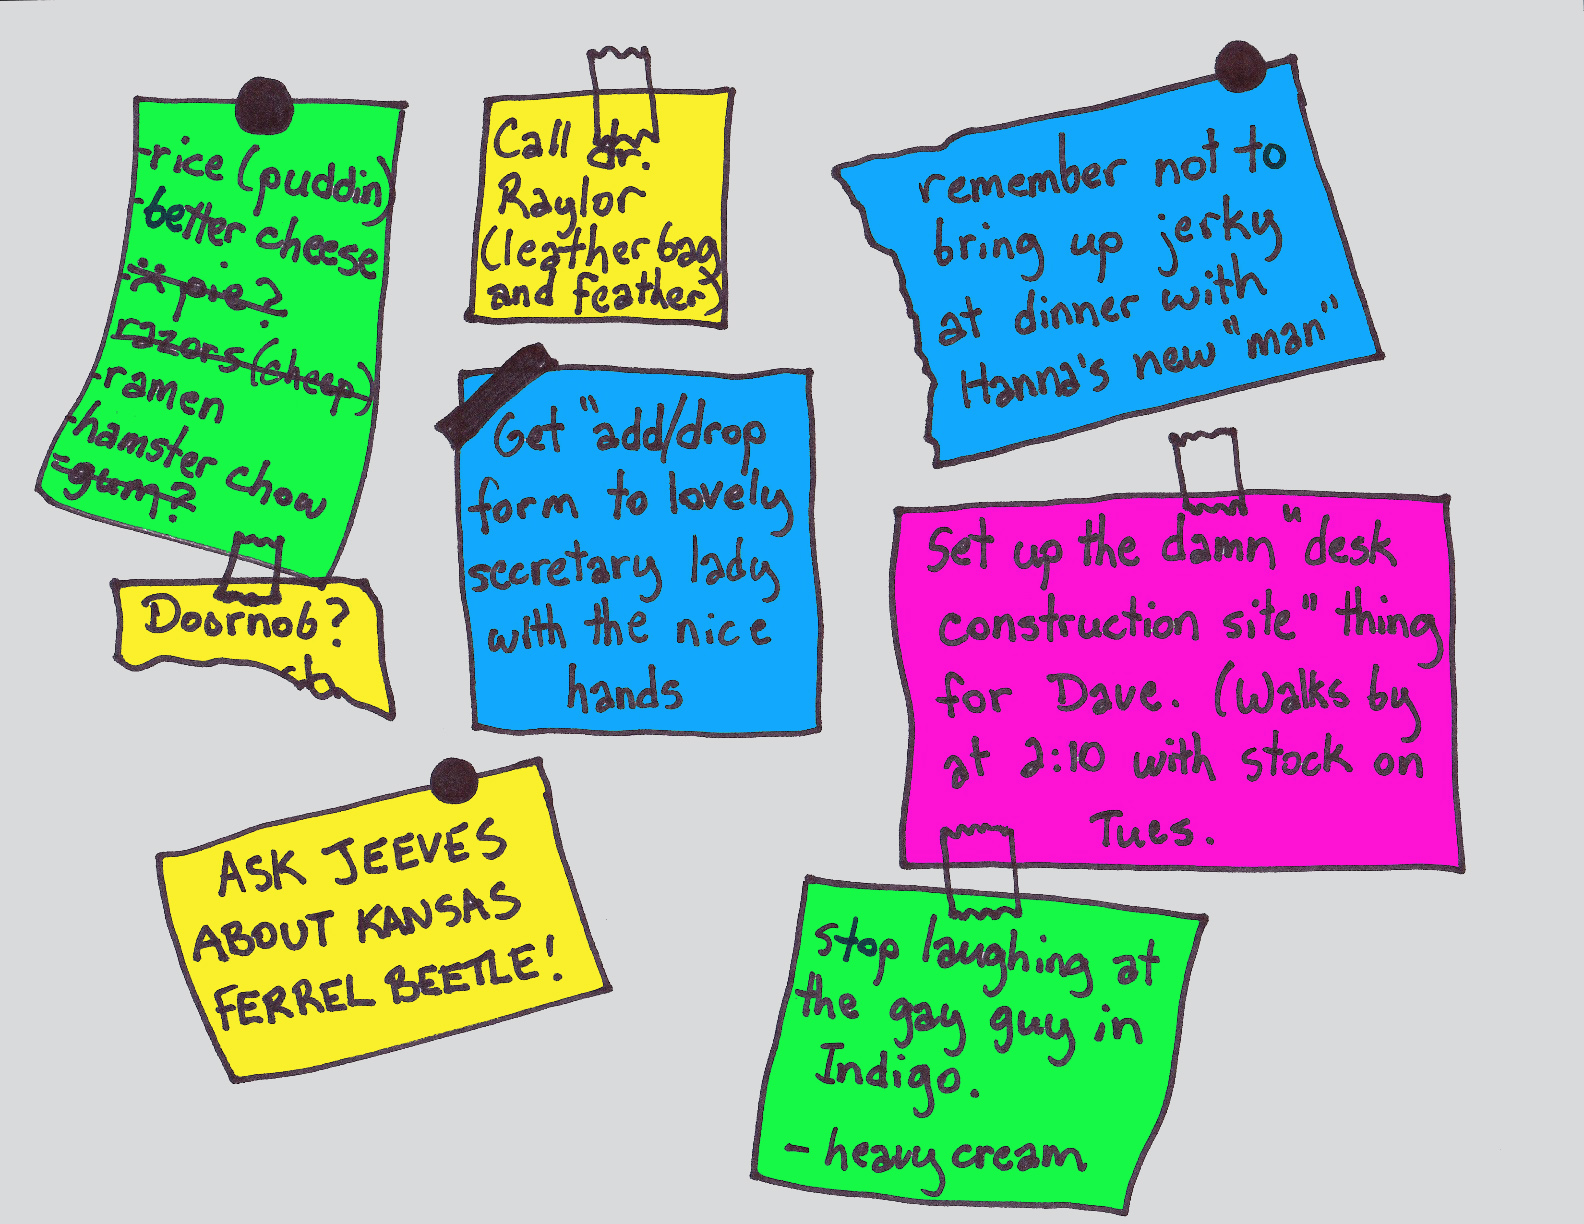 -rice (puddin)
-better cheese
- pie?
razors (cheep)
-ramen
-hamster chow
-gum?
Doornob?
Call dr.
Raylor
(leather bag
and feather)
Get "add/drop
form to lovely
secretary lady
with the nice
hands
remember not to
bring up jerky
at dinner with
Hanna's new "man"
Set up the damn "desk
construction site" thing
for Dave. (Walks by
at 2:10 with stock on
Tues.
ASK JEEVES
ABOUT KANSAS
FERREL BEETLE!
stop laughing at
the gay guy in
Indigo.
- heavy cream